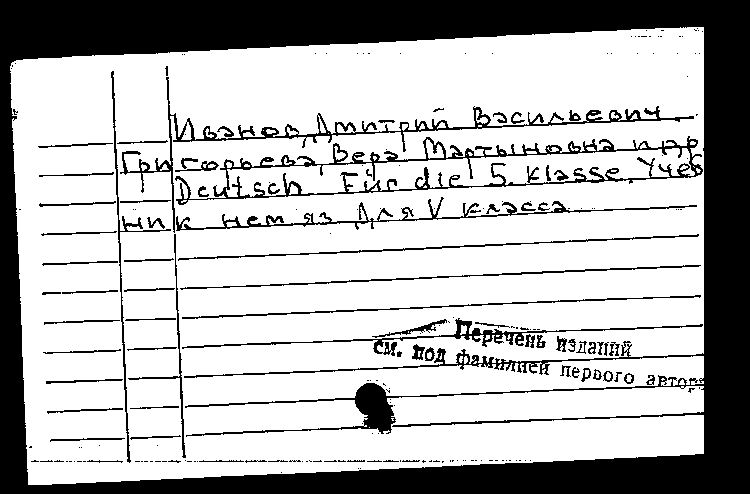 Иванов, Дмитрий Васильевич.
Григорьева, Вера Мартыновна и др.
Deutsch. Für die 5. Klasse. Учеб
ник нем яз для V класса
Перечень изданий
см. под фамилией первого автора